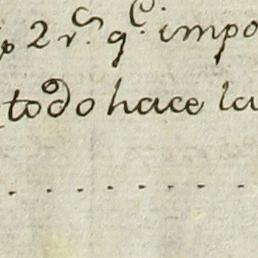 2 r.s q.e impo
todo hace la
. . . . . . . . . .